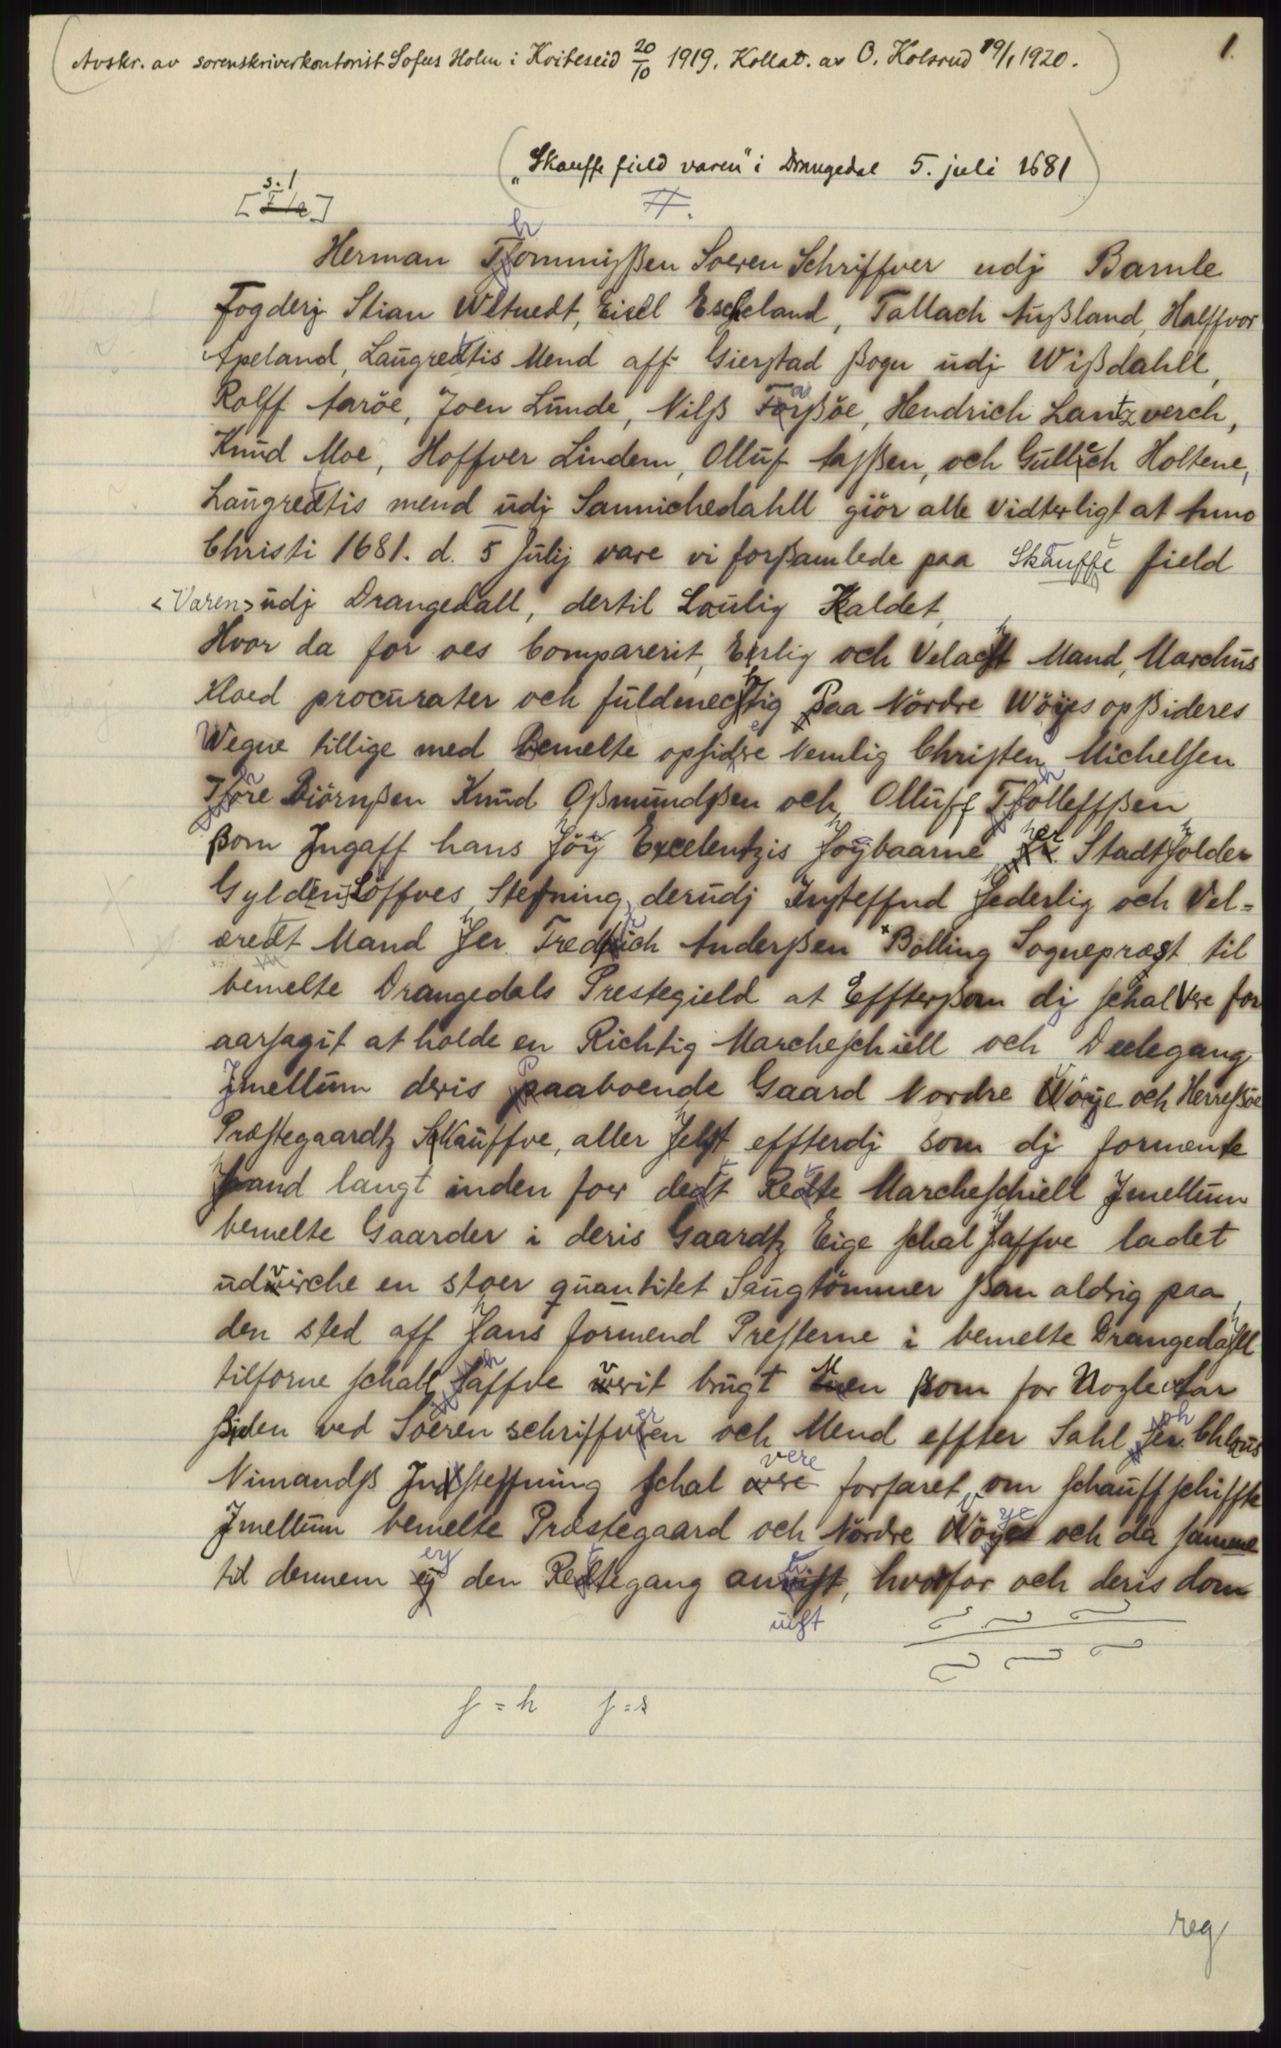 (Avskr. av sorenskriverkontorist Sofus Holm i Kviteseid 20/10 1919. Kollat. av O. Kolsrud 19/1 1920.)
1.
("Skauffe field varen" i Drangedal 5. juli 1681)
[s. 1]
Herman Thommisßen Soeren Schriffver udj Bamle
Fogderj Stian Wetuedt, Eisel Escheland, Tallach Außland, Halffvor
Apeland, Laugrettis Mend aff Gierstad ßogn udj Wißdahll,
Rolff Aaröe, Joen Lunde, Nilß Farßöe, Hendrich Lantzverch,
Knud Moe, Hoffver Lindem, Olluf Aasßen, och Gullech Holtene,
Laugrettis mend udj Sannichedahll giör alle vidterligt at Anno
Christi 1681. d. 5 Julij vare vi forßamlede paa Skauffe field
<Varen> udj Drangedall, dertil Loulig Kaldet,
Hvor da for oes Comparerit, Erlig och Velacht Mand, Marchus
Kloed procurater och fuldmechtig Paa Nördre Wöyes opßideres
Wegne tillige med Bemelte opsidere Nemlig Christen Michelsen
Thore Biörnßen Knud Oßmundßen och Olluff Tholleffßen
ßom Jngaff hans höy Excelentzis hoybaarne her Stadtholder
Gylden Löffves Stefning derudj Insteffnd hederlig och Vel=
æret Mand her Fredrich Anderßen Bölling Sognepræst til
bemelte Drangedals Prestegield at Effterßom dj schal Vere for
aarsagit at holde en Richtig Marcheschiell och Deelegang
Jmellum deris Paaboende Gaard Nordre Vöye och Herreßöe
Præstegaardtz Skauffve, aller helst effterdj som dj formente
hand langt inden for det Rette Marcheschiell Jmellum
bemelte Gaarder i deris Gaardtz Eige schal haffve ladet
udvirche en stoer quantitet Saugtömmer ßom aldrig paa
den sted aff hans formend Presterne i bemelte Drangedahll
tilforne schall haffve verit brugt Men ßom for Nogle Aar
ßiden ved Soeren schriffveren och Mend effter Sahl her Chlaus
Nimandß Jndsteffning schal vere forfaret om schauffschiffte
Jmellum bemelte Præstegaard och Nördre Vöye och da samme
til dennem ey den Rettegang anuist, hvorfor och deris dom
uist
f = h ſ = s
reg